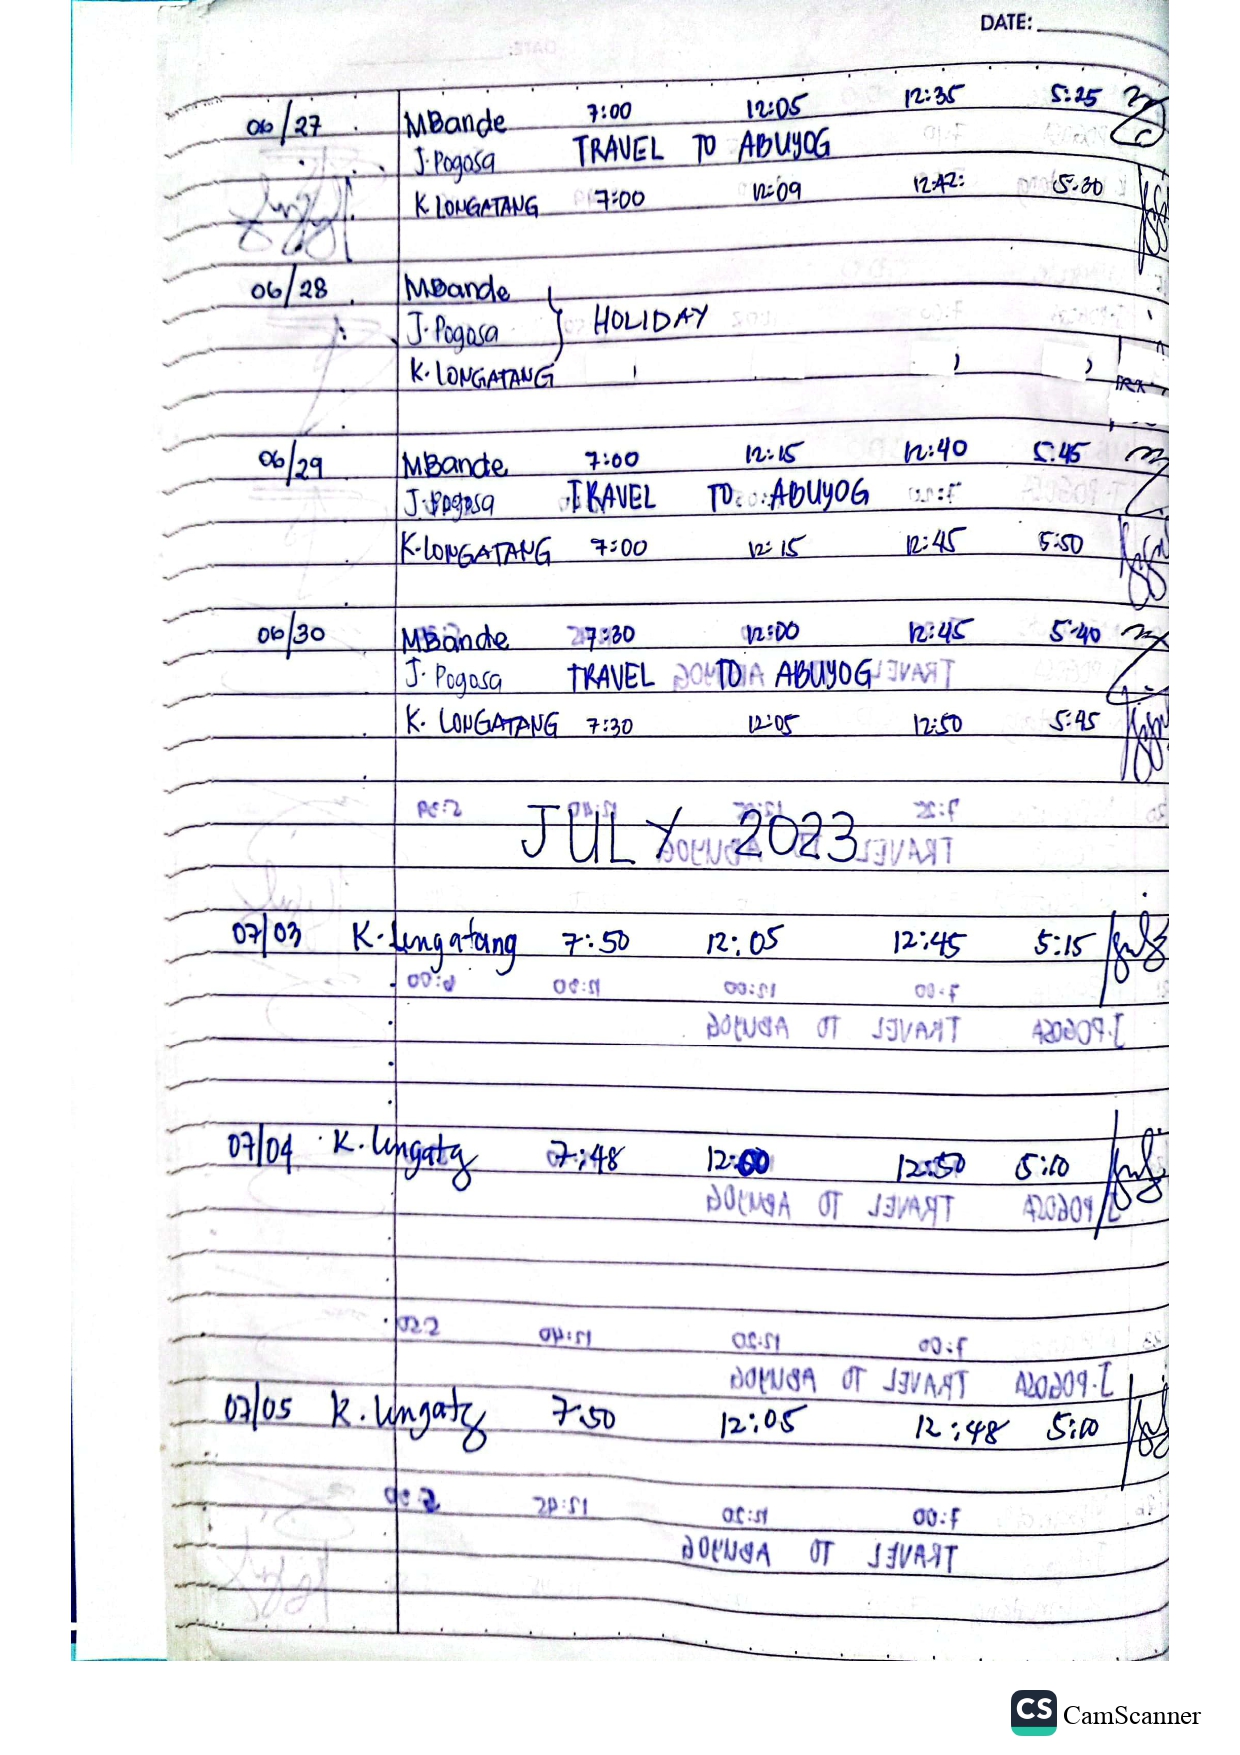 DATE:
06/27 MBande 7:00 12:05 12:35 5:25
J. Pogosa TRAVEL TO ABUYOG
K LONGATANG 7:00 12:09 12:42: 5:30
06/28 MBande
J. Pogosa HOLIDAY
K. LONGATANG
06/29 MBande 7:00 12:15 12:40 5:45
J. Pogosa TRAVEL TO ABUYOG
K-LONGATANG 7:00 12:15 12:45 5:50
06/30 MBande 7:30 12:00 12:45 5:40
J. Pogosa TRAVEL TO ABUYOG
K. LONGATANG 7:30 12:05 12:50 5:45
JULY 2023
07/03 K. Longatang 7:50 12:05 12:45 5:15
07/04 K. Longatg 7:48 12:00 12:50 5:10
07/05 K. Longatg 7:50 12:05 12:48 5:10
CS CamScanner